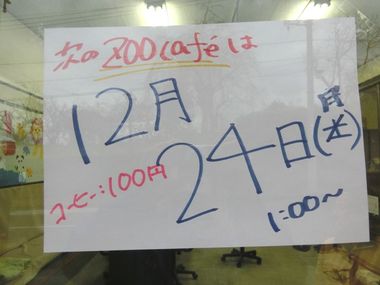 次の ZOO café は
12月
24日(月)
コーヒー:100円
1:00〜